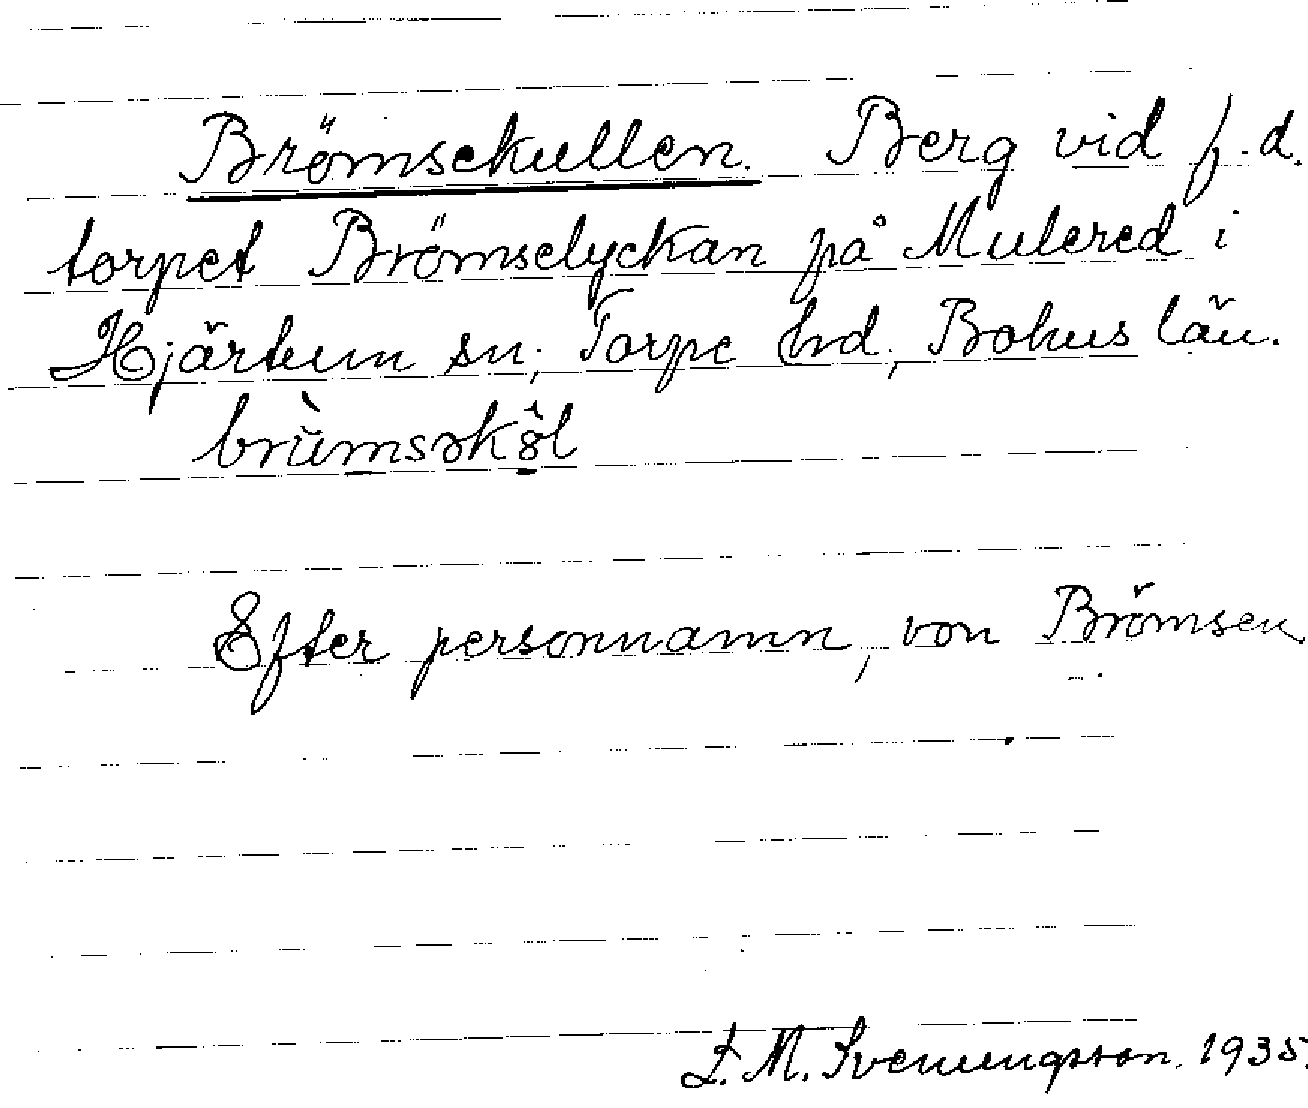 Brömsekullen. Berg vid f.d.
torpet Brömselyckan på Mulered i
Hjärtum sn, Torpe hd, Bohus län.
brùmsəkŝl
Efter personnamn, von Brömsen.
L. M. Svenungsson. 1935.